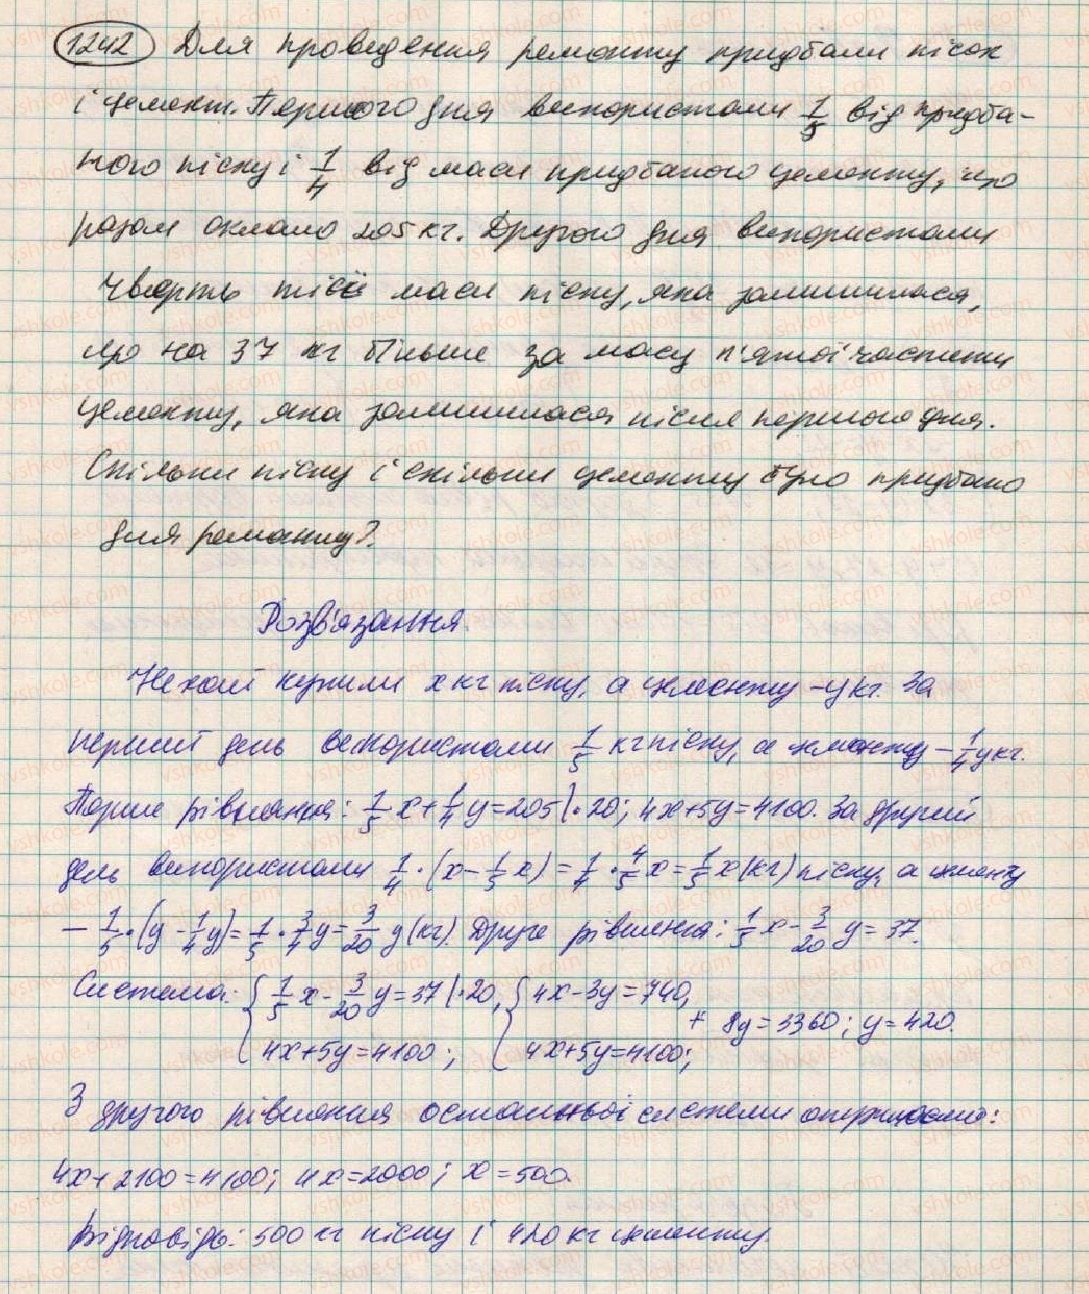 1242 Для проведення ремонту придбали пісок
і цемент. Першого дня використали 1/5 від придба-
ного піску і 1/4 від маси придбаного цементу, що
разом склало 205 кг. Другого дня використали
чверть тієї маси піску, яка залишилася,
що на 37 кг більше за масу п'ятої частини
цементу, яка залишилася після першого дня.
Скільки піску і скільки цементу було придбано
для ремонту?
Розв'язання.
Нехай купили x кг піску, а цементу – y кг. За
перший день використали 1/5 кг піску, а цементу – 1/4 y кг.
Перше рівняння: 1/5 x + 1/4 y = 205 |·20; 4x+5y=4100. За другий
день використали 1/4 · (x - 1/5 x) = 1/4 · 4/5 x = 1/5 x (кг) піску, а цементу
– 1/5 · (y - 1/4 y) = 1/5 · 3/4 y = 3/20 y (кг). Друге рівняння: 1/5 x - 3/20 y = 37.
Система: { 1/5 x - 3/20 y = 37 |·20, { 4x-3y=740,
4x+5y=4100; 4x+5y=4100; + 8y=3360; y=420.
З другого рівняння останньої системи отримаємо:
4x+2100=4100; 4x=2000; x=500.
Відповідь: 500 кг піску і 420 кг цементу.